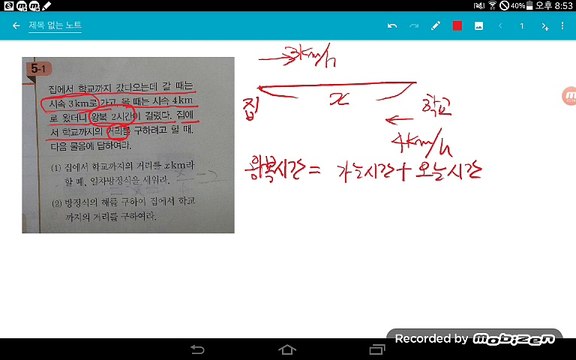 40% 오후 8:53
← 제목 없는 노트
1
5-1
집에서 학교까지 갔다오는데 갈 때는
시속 3 km로 가고, 올 때는 시속 4 km
로 왔더니 왕복 2시간이 걸렸다. 집에
서 학교까지의 거리를 구하려고 할 때,
다음 물음에 답하여라.
(1) 집에서 학교까지의 거리를 x km라
할 때, 일차방정식을 세워라.
(2) 방정식의 해를 구하여 집에서 학교
까지의 거리를 구하여라.
→ 3km/h
집 x 학교
← 4km/h
왕복시간 = 가는시간 + 오는시간
Recorded by
MOBIZEN